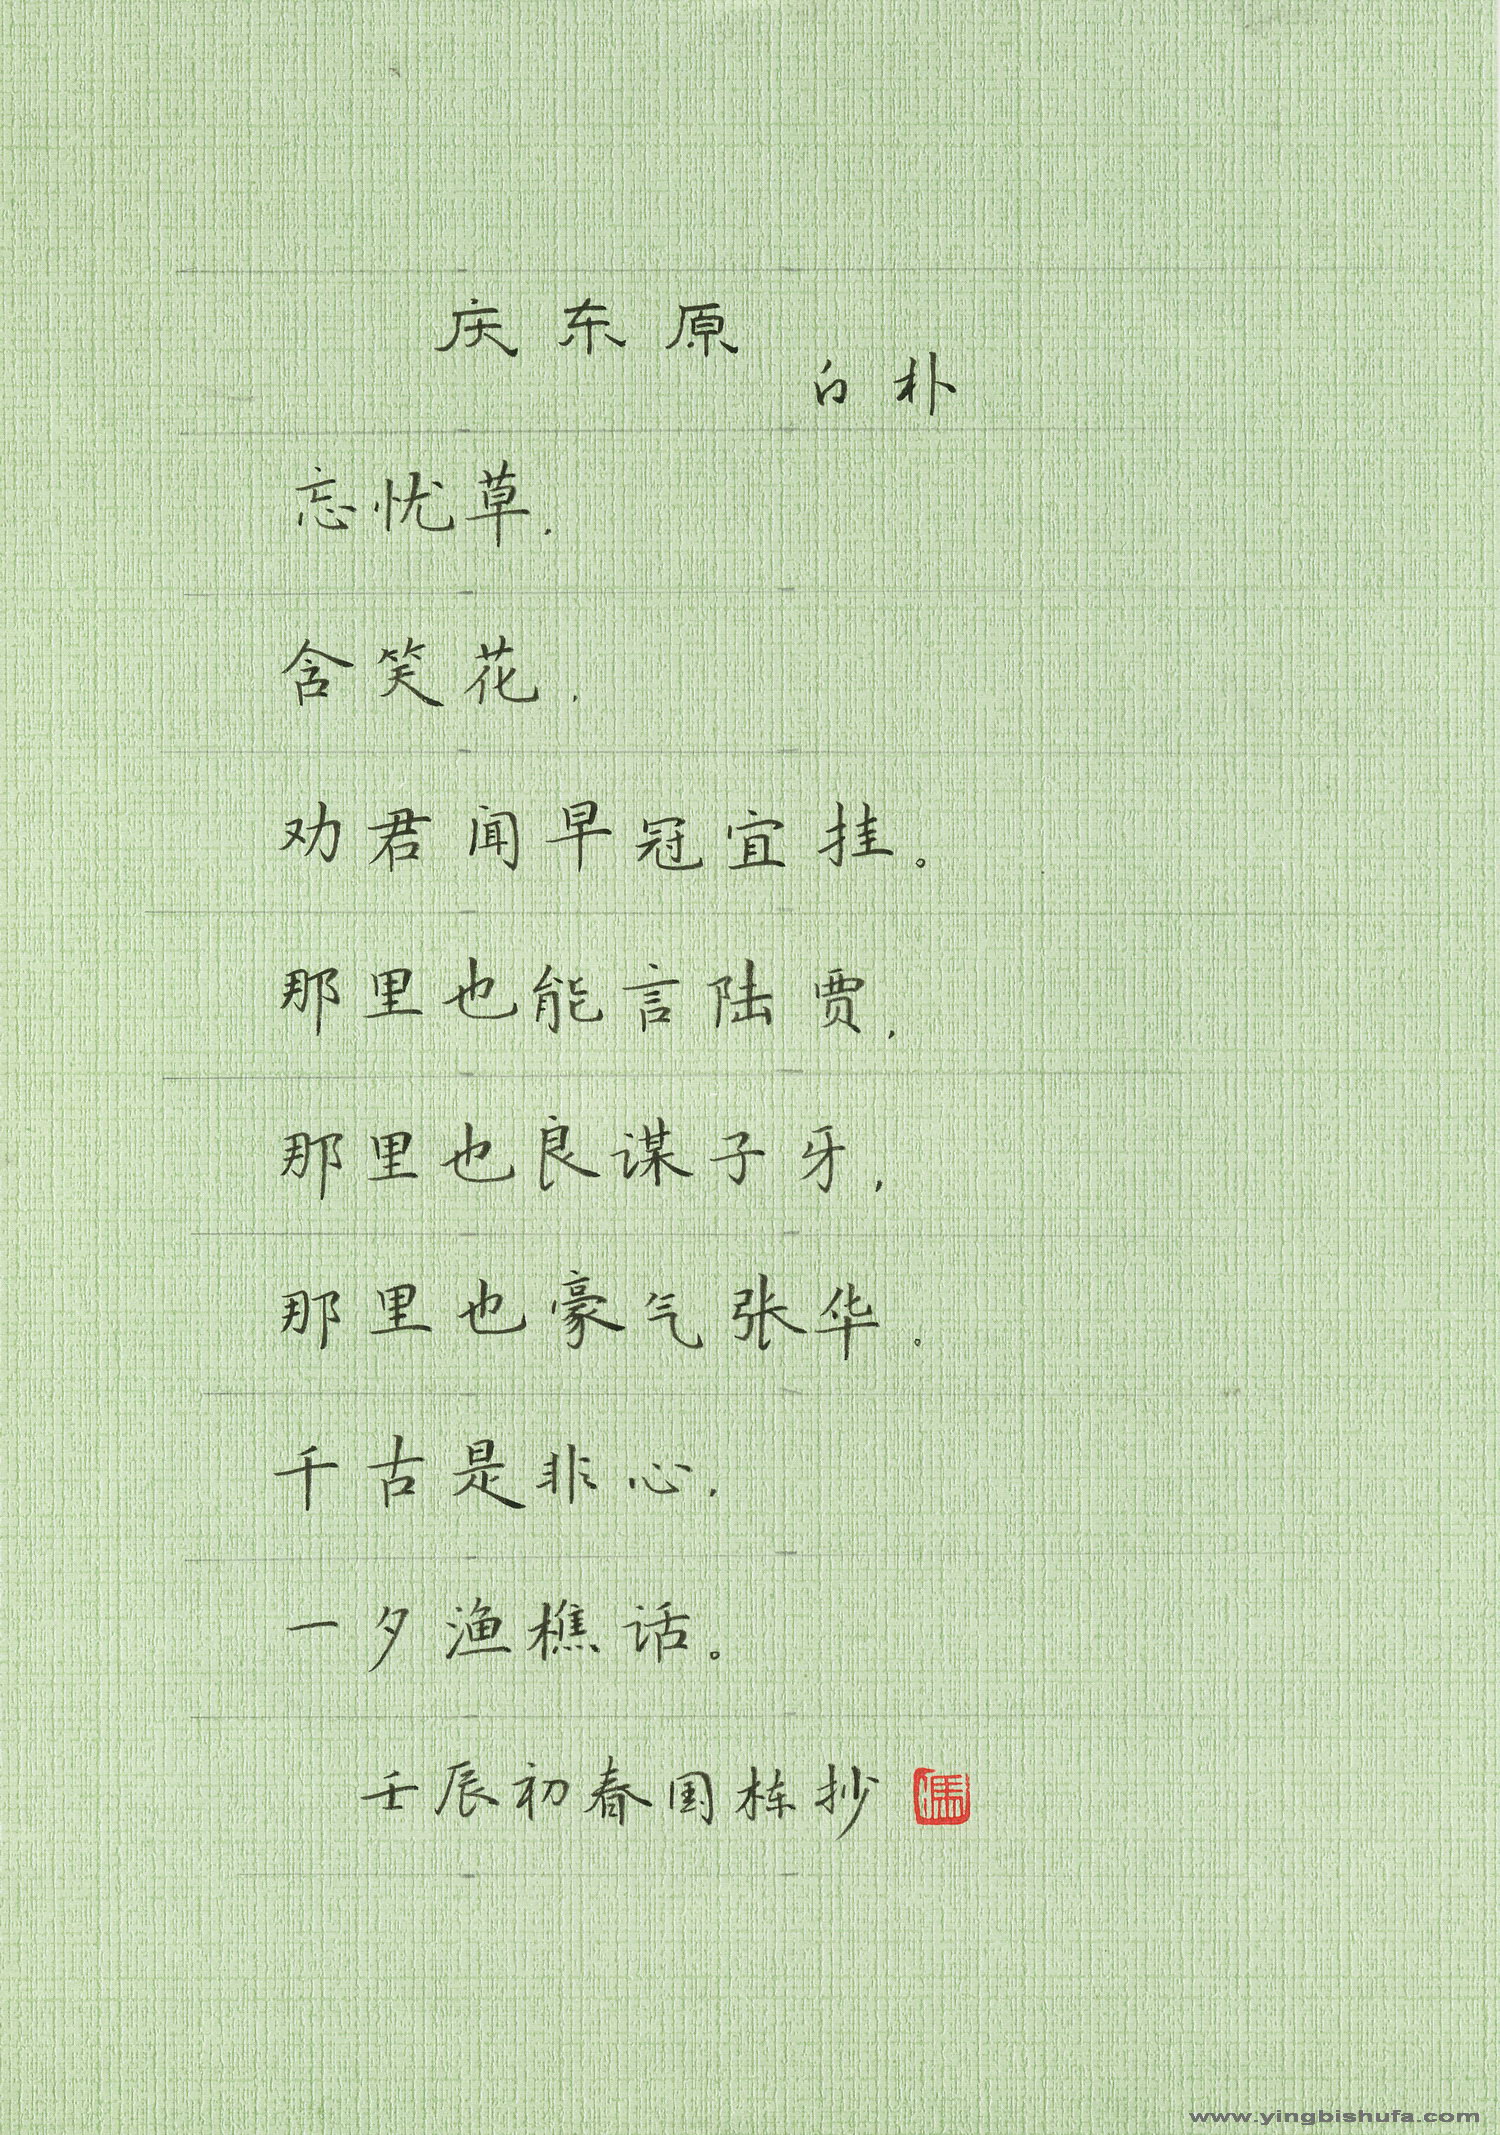 庆东原
白朴
忘忧草,
含笑花,
劝君闻早冠宜挂。
那里也能言陆贾,
那里也良谋子牙,
那里也豪气张华。
千古是非心,
一夕渔樵话。
壬辰初春国栋抄
冯
www.yingbishufa.com